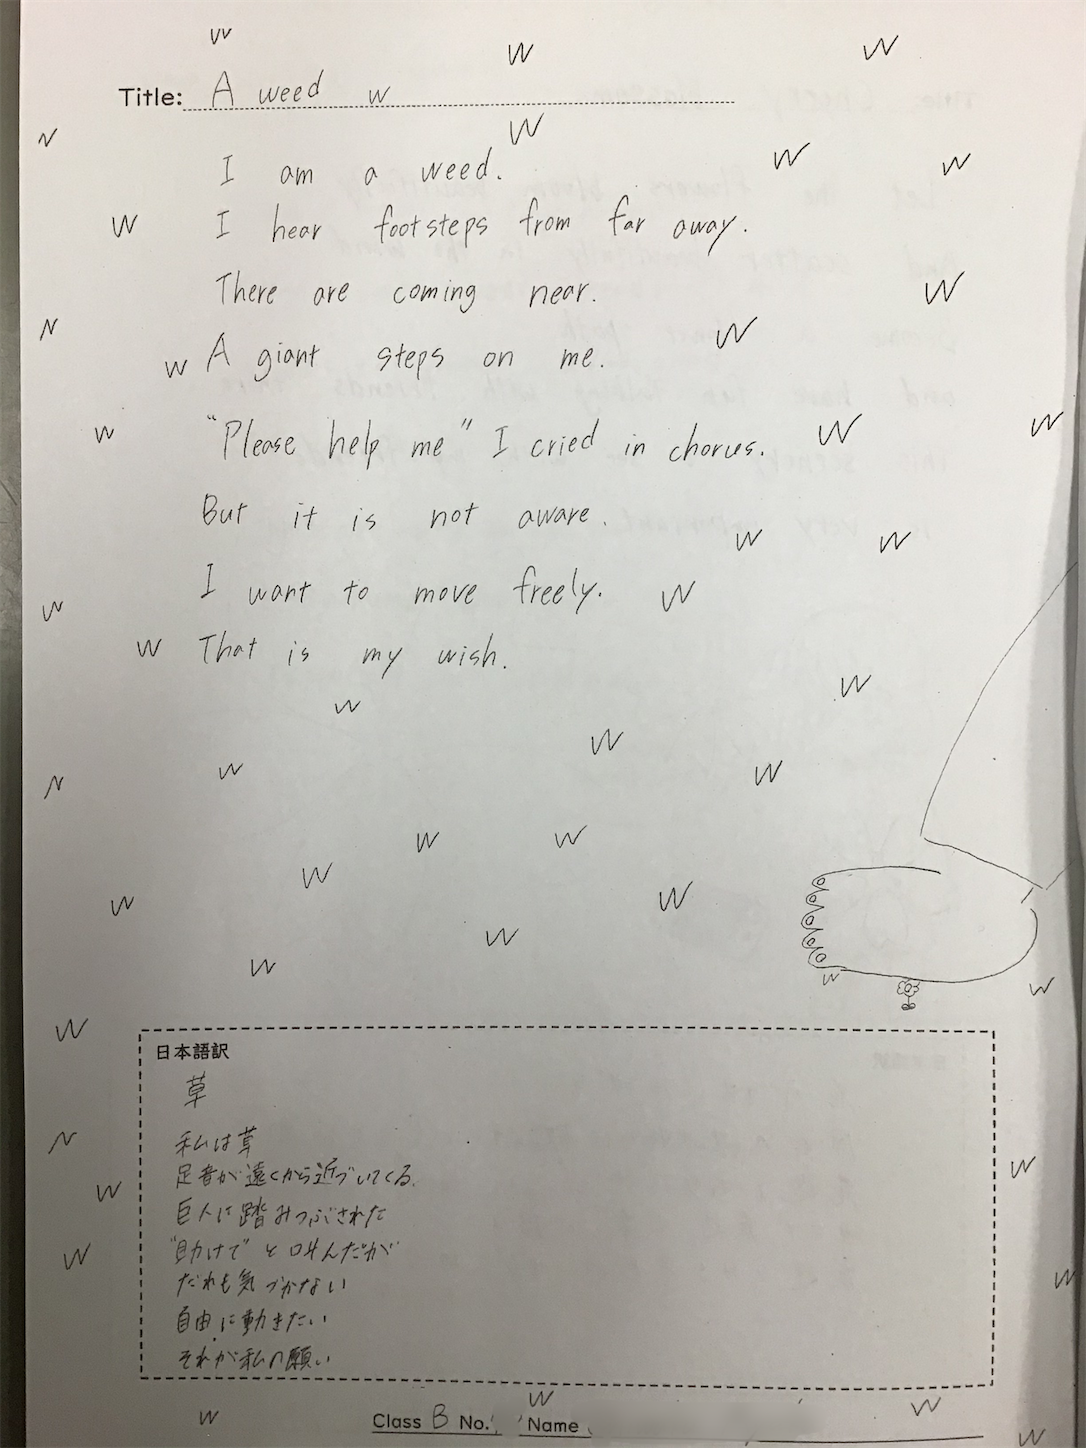 Title: A weed
I am a weed.
I hear footsteps from far away.
There are coming near.
A giant steps on me.
"Please help me" I cried in chorus.
But it is not aware.
I want to move freely.
That is my wish.
日本語訳
草
私は草
足音が遠くから近づいてくる.
巨人に踏みつぶされた
"助けて" と叫んだが
だれも気づかない
自由に動きたい
それが私の願い
Class B No. Name